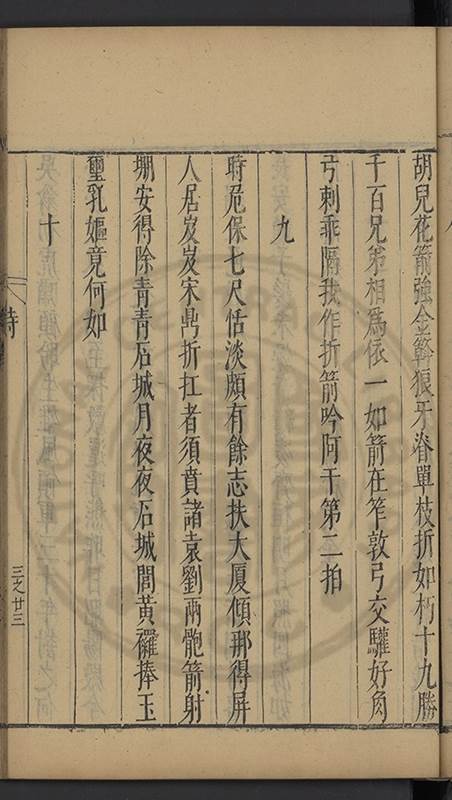 胡兒花箭強金簳狼牙脊單枝折如朽十九勝
千百兄弟相爲依一如箭在笮敦弓交驩好角
弓刺乖隔我作折箭吟阿干第二拍
九
時危保七尺恬淡頗有餘志扶大厦傾那得屏
人居岌岌宋鼎折扛者須賁諸袁劉兩骲箭射
堋安得除青青石城月夜夜石城閭黃襹捧玉
璽乳嫗竟何如
十
詩
三之廿三